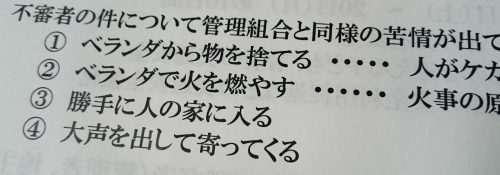 不審者の件について管理組合と同様の苦情が出て
① ベランダから物を捨てる ‥‥‥ 人がケガ
② ベランダで火を燃やす ‥‥‥ 火事の原
③ 勝手に人の家に入る
④ 大声を出して寄ってくる